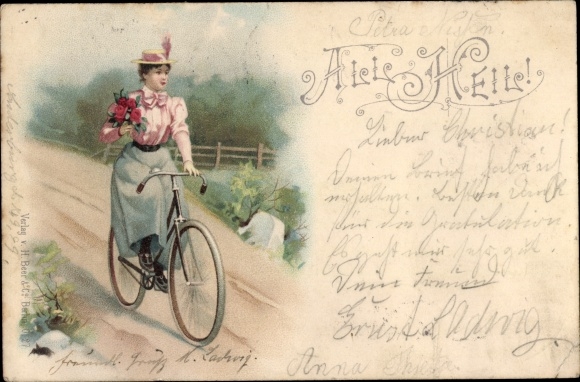 Petra
ALL HEIL!
Lieber Christian!
Deinen Brief habe ich
erhalten. Besten Dank
für die Gratulation.
Es geht mir sehr gut
Dein Freund
Ernst Ladwig.
Anna
Freundl. Gruß K. Ladwig.
Verlag v. H. Beer &